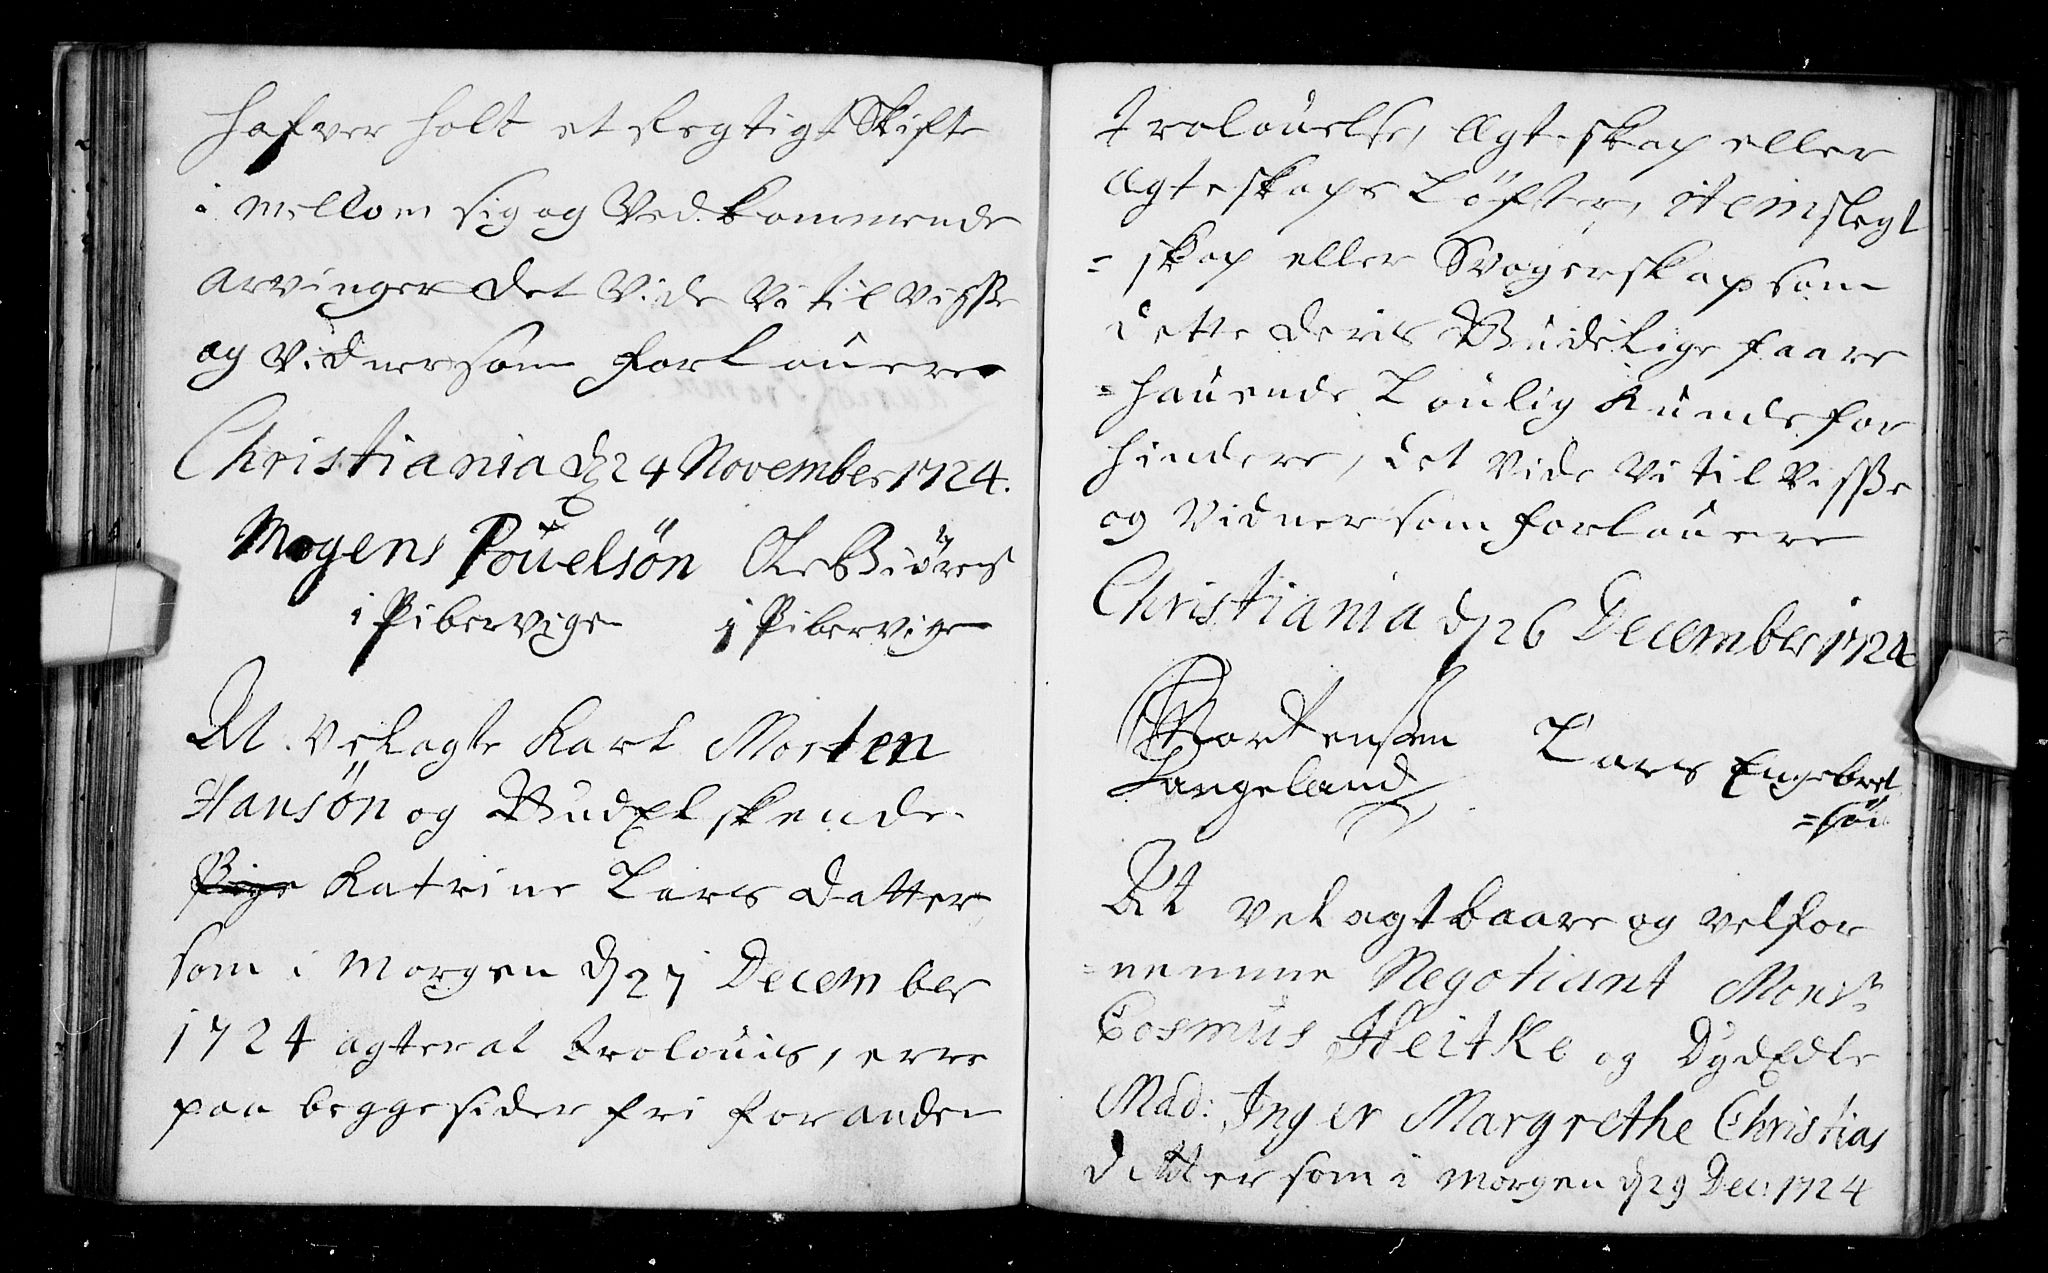 hafver holt et Regtigt Skifte
i mellom sig og Vedkommende
arvinger det Vide Vi til Visse
og Vidner som forlovere
Christiania d 24 November 1724.
Mogens Poüelsön Ole Biörns
i Pibervigen i Pibervigen
At Velagte Karl Morten
Hansön og Gudelskende
Pige Katrine Lars datter
som i morgen d 27 December
1724 agter at troloüis, erre
paa begge sider fri for anden
troloüelse, Ægteskap eller
Ægteskaps Löfter, item slegt
=skap eller Svogerskap som
dette deris Gudelige faare
=hauende Loulig Kunde for
hindere, det Vide Vi til Visse
og Vidner som forlouere
Christiania d 26 December 1724
Mortensen Lars Engebret
Langeland =sön
At Velagtbaare og velfor
=nemme Negotiant Monsr
Cosmus Heitke og Dydædle
Mad: Inger Margrethe Christias
datter som i morgen d 29 Dec: 1724